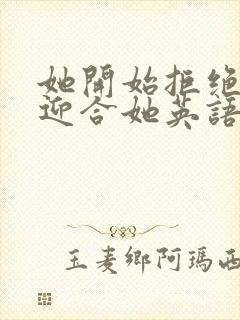 她開始拒絕
迎合她英語
玉麦鄉阿瑪西